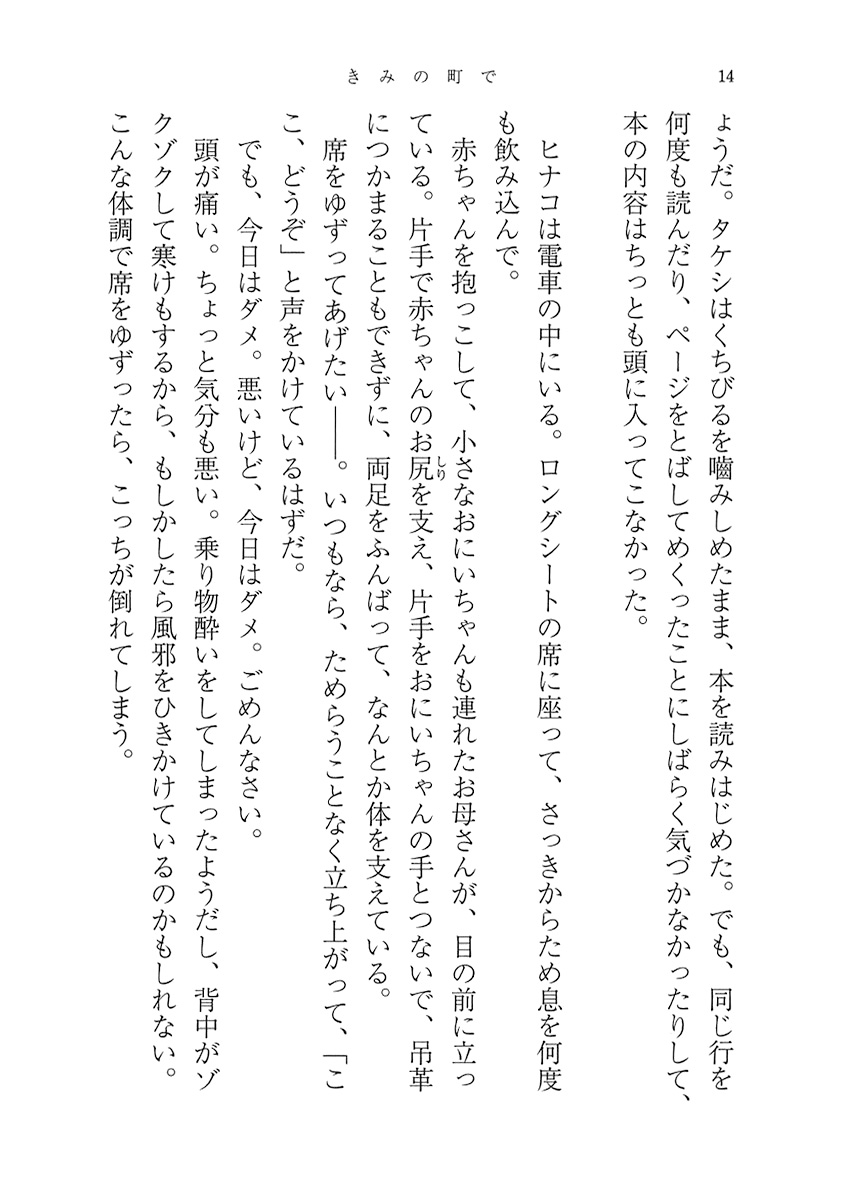 きみの町で
14
ょうだ。タケシはくちびるを嚙みしめたまま、本を読みはじめた。でも、同じ行を
何度も読んだり、ページをとばしてめくったことにしばらく気づかなかったりして、
本の内容はちっとも頭に入ってこなかった。
ヒナコは電車の中にいる。ロングシートの席に座って、さっきからため息を何度
も飲み込んで。
赤ちゃんを抱っこして、小さなおにいちゃんも連れたお母さんが、目の前に立っ
ている。片手で赤ちゃんのお尻を支え、片手をおにいちゃんの手とつないで、吊革
しり
につかまることもできずに、両足をふんばって、なんとか体を支えている。
席をゆずってあげたい――。いつもなら、ためらうことなく立ち上がって、「こ
こ、どうぞ」と声をかけているはずだ。
でも、今日はダメ。悪いけど、今日はダメ。ごめんなさい。
頭が痛い。ちょっと気分も悪い。乗り物酔いをしてしまったようだし、背中がゾ
クゾクして寒けもするから、もしかしたら風邪をひきかけているのかもしれない。
こんな体調で席をゆずったら、こっちが倒れてしまう。